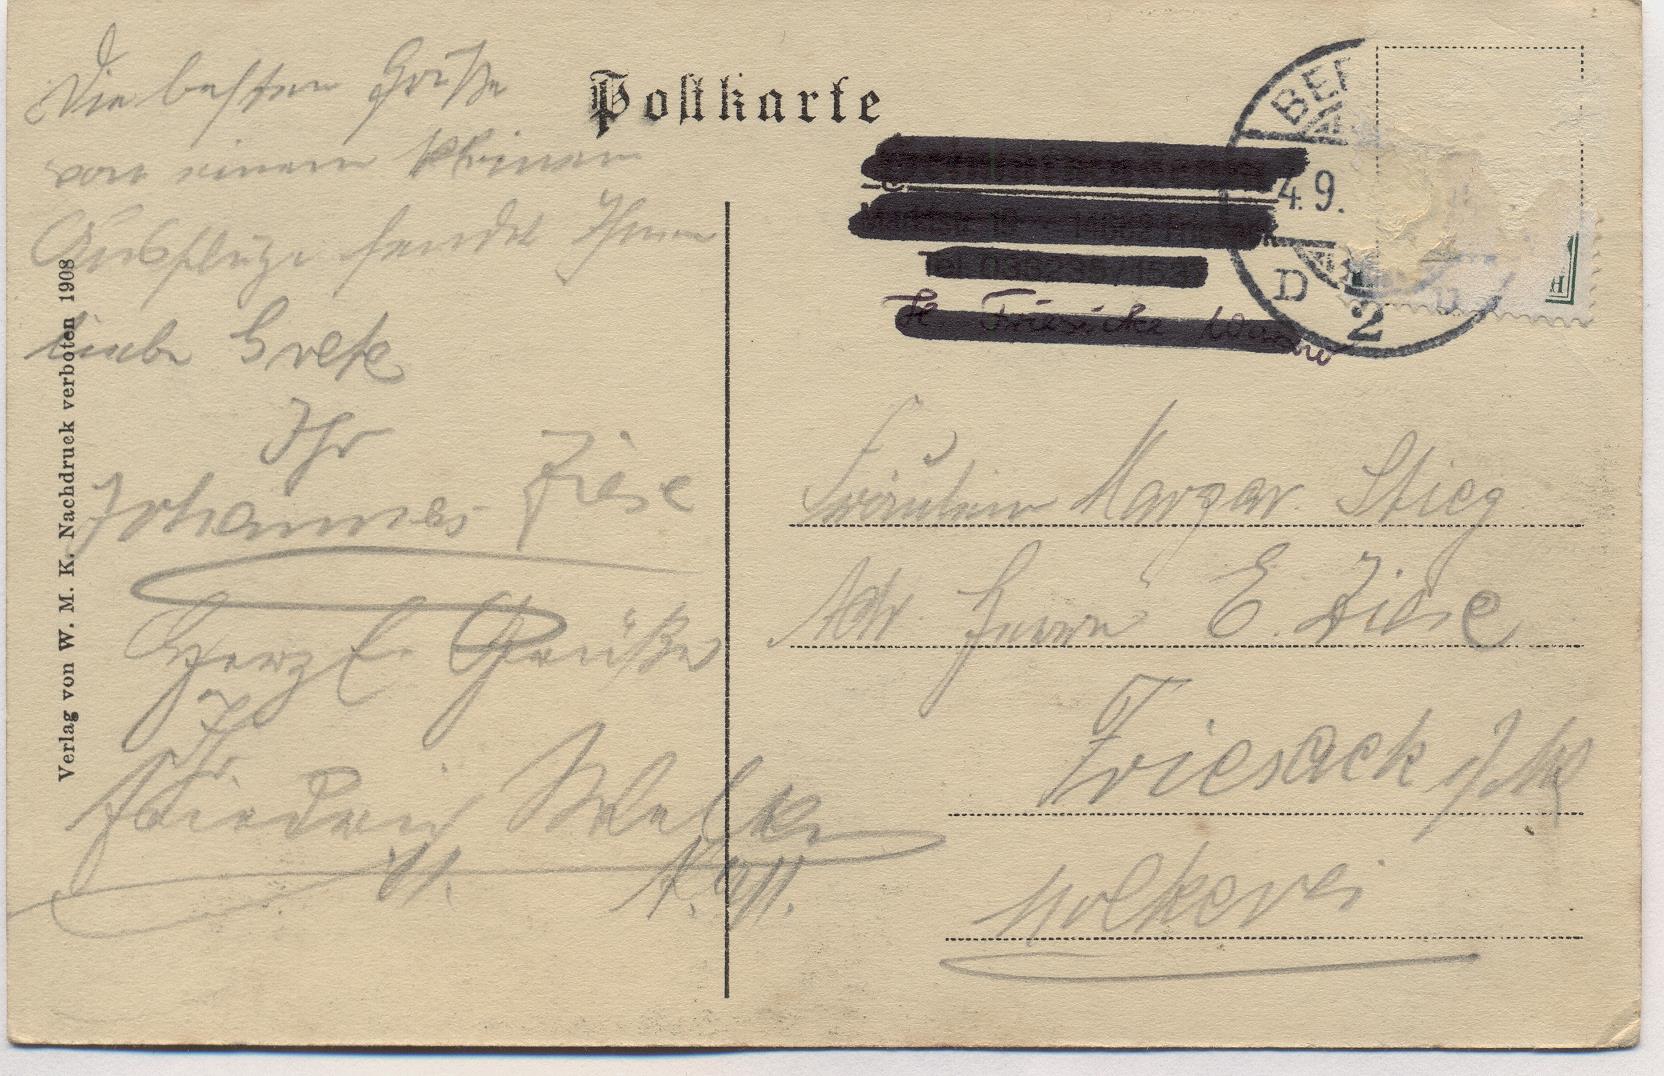 Die besten Grüße
von einem kleinen
Ausfluge sendet Ihnen
liebe Grete
Ihr
Johannes Ziese
Herzl. Grüße
Ihr
Friedrich
Postkarte
BER
4.9.
D
2
Fräulein Margar. Stieg
Adr. Herrn E. Ziese
Friesack i/M
Molkerei
Verlag von W. M. K. Nachdruck verboten 1908